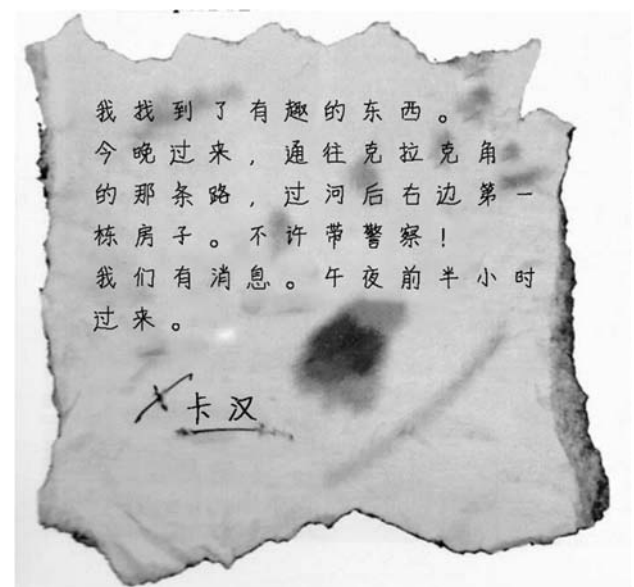 我找到了有趣的东西。
今晚过来，通往克拉克角
的那条路，过河后右边第一
栋房子。不许带警察！
我们有消息。午夜前半小时
过来。
卡汉